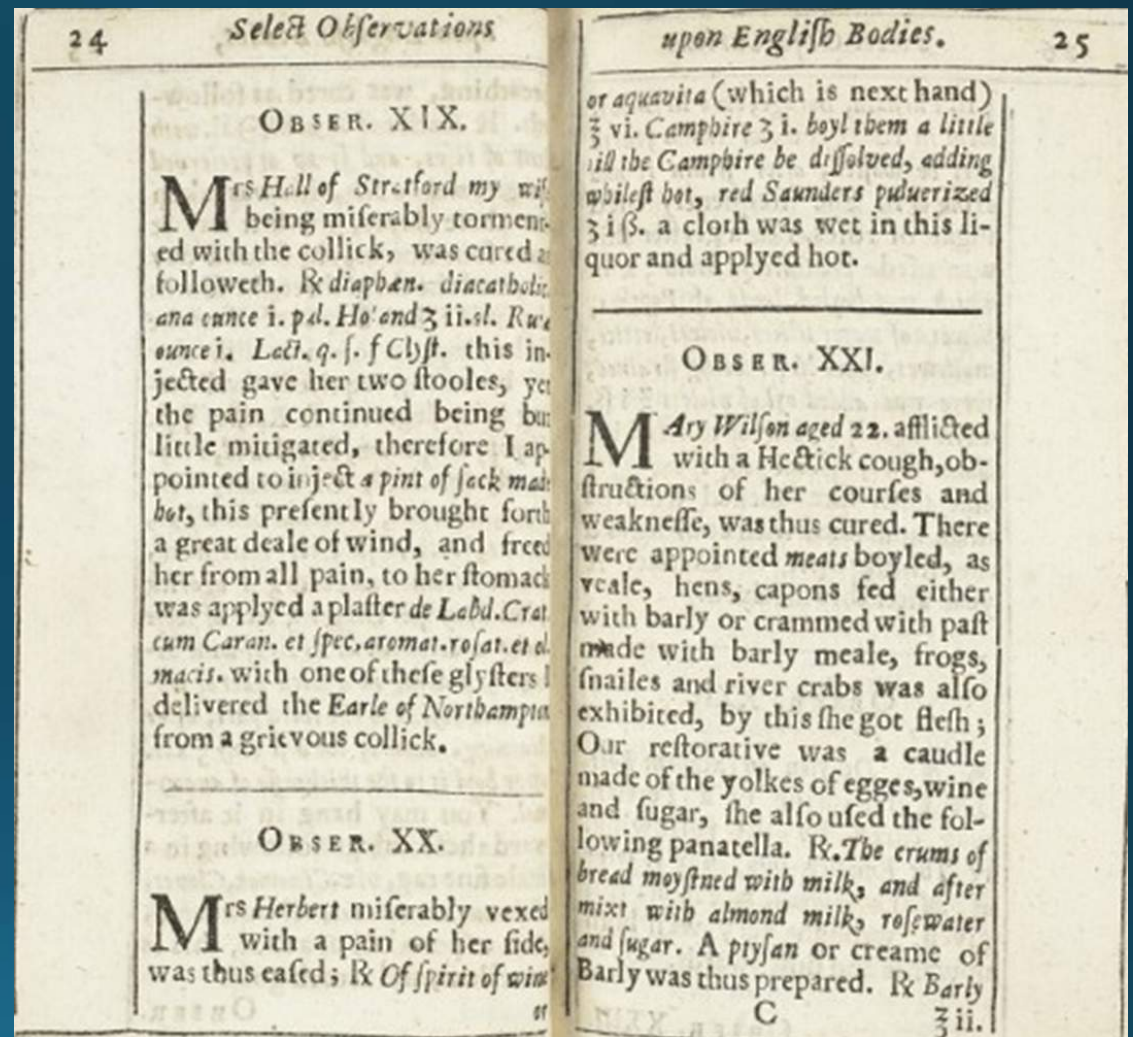 24 Select Obſervations
OBSER. XIX.
Mrs Hall of Stratford my wife
being miſerably torment-
ed with the collick, was cured as
followeth. ℞ diaphæn. diacatholic.
ana ounce i. pul. Holand ʒ ii. ol. Rue
ounce i. Lact. q. ſ. f Clyſt. this in-
jected gave her two ſtooles, yet
the pain continued being but
little mitigated, therefore I ap-
pointed to inject a pint of ſack made
hot, this preſently brought forth
a great deale of wind, and freed
her from all pain, to her ſtomach
was applyed a plaſter de Labd. Crat.
cum Caran. et ſpec. aromat. roſat. et ol.
macis. with one of theſe glyſters I
delivered the Earle of Northampton
from a grievous collick.
OBSER. XX.
Mrs Herbert miſerably vexed
with a pain of her ſide,
was thus eaſed; ℞ Of ſpirit of wine
or
upon Engliſh Bodies. 25
or aquavita (which is next hand)
℥ vi. Camphire ʒ i. boyl them a little
till the Camphire be diſſolved, adding
whileſt hot, red Saunders pulverized
ʒ i ß. a cloth was wet in this li-
quor and applyed hot.
OBSER. XXI.
MAry Wilſon aged 22. afflicted
with a Hectick cough, ob-
ſtructions of her courſes and
weakneſſe, was thus cured. There
were appointed meats boyled, as
veale, hens, capons fed either
with barly or crammed with paſt
made with barly meale, frogs,
ſnailes and river crabs was alſo
exhibited, by this ſhe got fleſh;
Our reſtorative was a caudle
made of the yolkes of egges, wine
and ſugar, ſhe alſo uſed the fol-
lowing panatella. ℞. The crums of
bread moyſtned with milk, and after
mixt with almond milk, roſewater
and ſugar. A ptyſan or creame of
Barly was thus prepared. ℞ Barly
C ℥ ii.